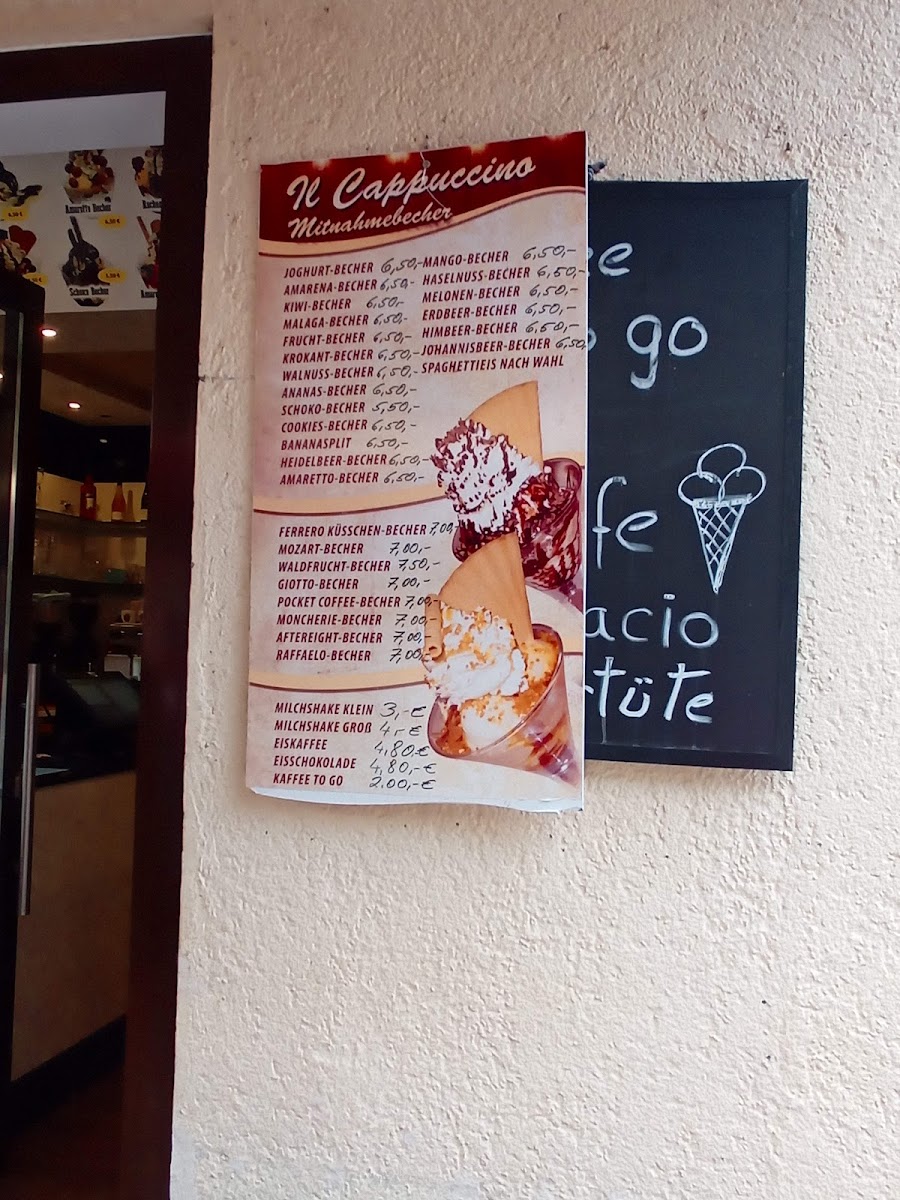 Il Cappuccino
Mitnahmebecher
JOGHURT-BECHER 6,50,-
AMARENA-BECHER 6,50,-
KIWI-BECHER 6,50,-
MALAGA-BECHER 6,50,-
FRUCHT-BECHER 6,50,-
KROKANT-BECHER 6,50,-
WALNUSS-BECHER 6,50,-
ANANAS-BECHER 6,50,-
SCHOKO-BECHER 5,50,-
COOKIES-BECHER 6,50,-
BANANASPLIT 6,50,-
HEIDELBEER-BECHER 6,50,-
AMARETTO-BECHER 6,50,-
MANGO-BECHER 6,50,-
HASELNUSS-BECHER 6,50,-
MELONEN-BECHER 6,50,-
ERDBEER-BECHER 6,50,-
HIMBEER-BECHER 6,50,-
JOHANNISBEER-BECHER 6,50,
SPAGHETTIEIS NACH WAHL
FERRERO KÜSSCHEN-BECHER 7,00,-
MOZART-BECHER 7,00,-
WALDFRUCHT-BECHER 7,50,-
GIOTTO-BECHER 7,00,-
POCKET COFFEE-BECHER 7,00,-
MONCHERIE-BECHER 7,00,-
AFTEREIGHT-BECHER 7,00,-
RAFFAELO-BECHER 7,00,
MILCHSHAKE KLEIN 3,-€
MILCHSHAKE GROß 4,-€
EISKAFFEE 4,80€
EISSCHOKOLADE 4,80,-€
KAFFEE TO GO 2.00,-€
go
fe
acio
tüte
Amaretto Becher
Schoko Becher